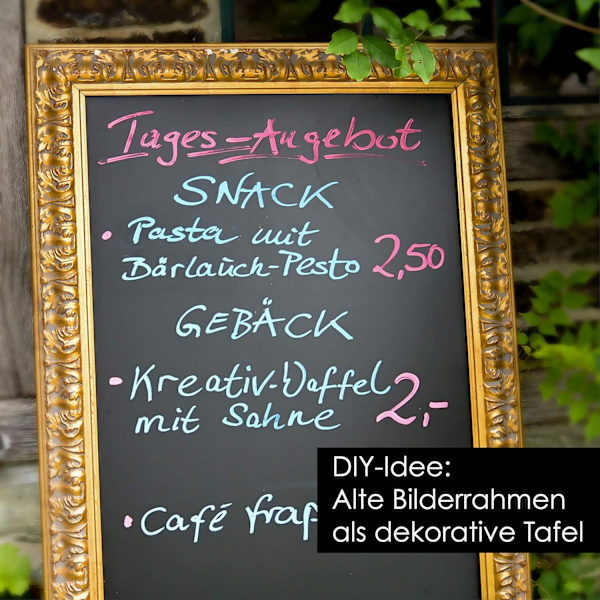 Tages-Angebot
SNACK
• Pasta mit
Bärlauch-Pesto 2,50
GEBÄCK
• Kreativ-Waffel
mit Sahne 2,-
• Café frap
DIY-Idee:
Alte Bilderrahmen
als dekorative Tafel